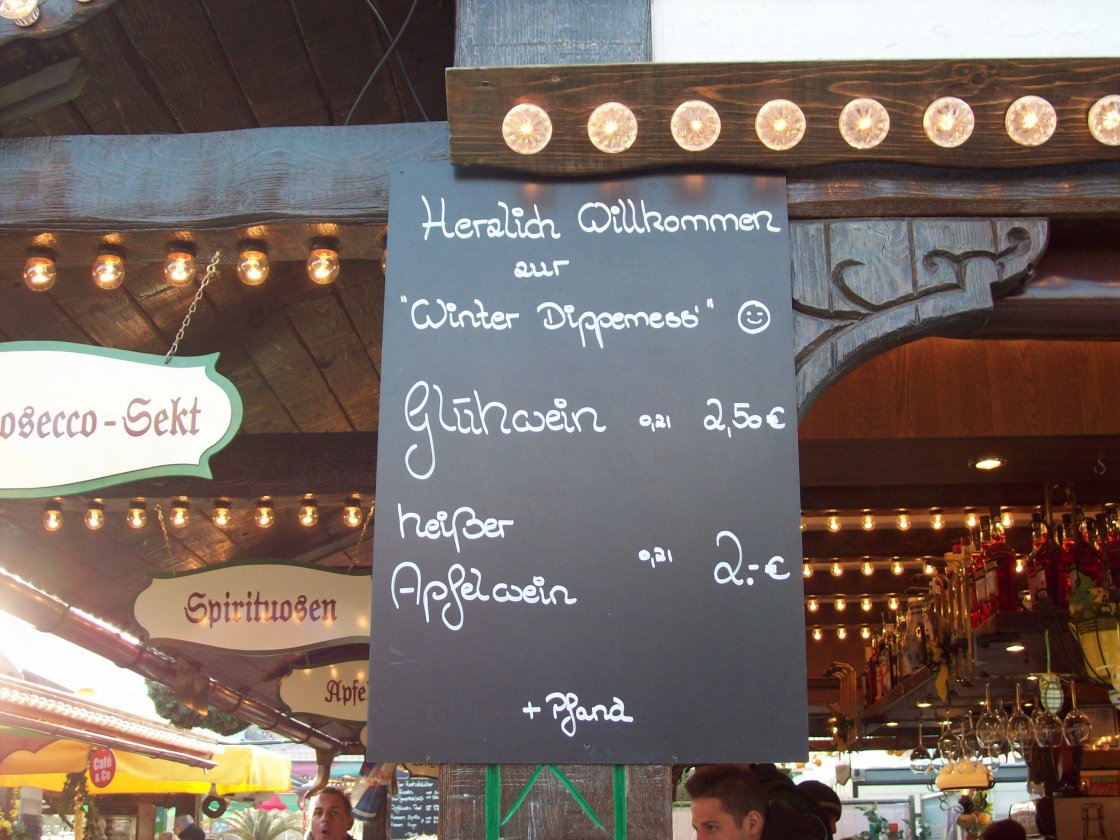 Herzlich Willkommen
zur
"Winter Dippemess'"
Glühwein 0,2l 2,50€
heißer
Apfelwein 0,2l 2.-€
+ Pfand
osecco - Sekt
Spirituosen
Apfel
Café
& Co